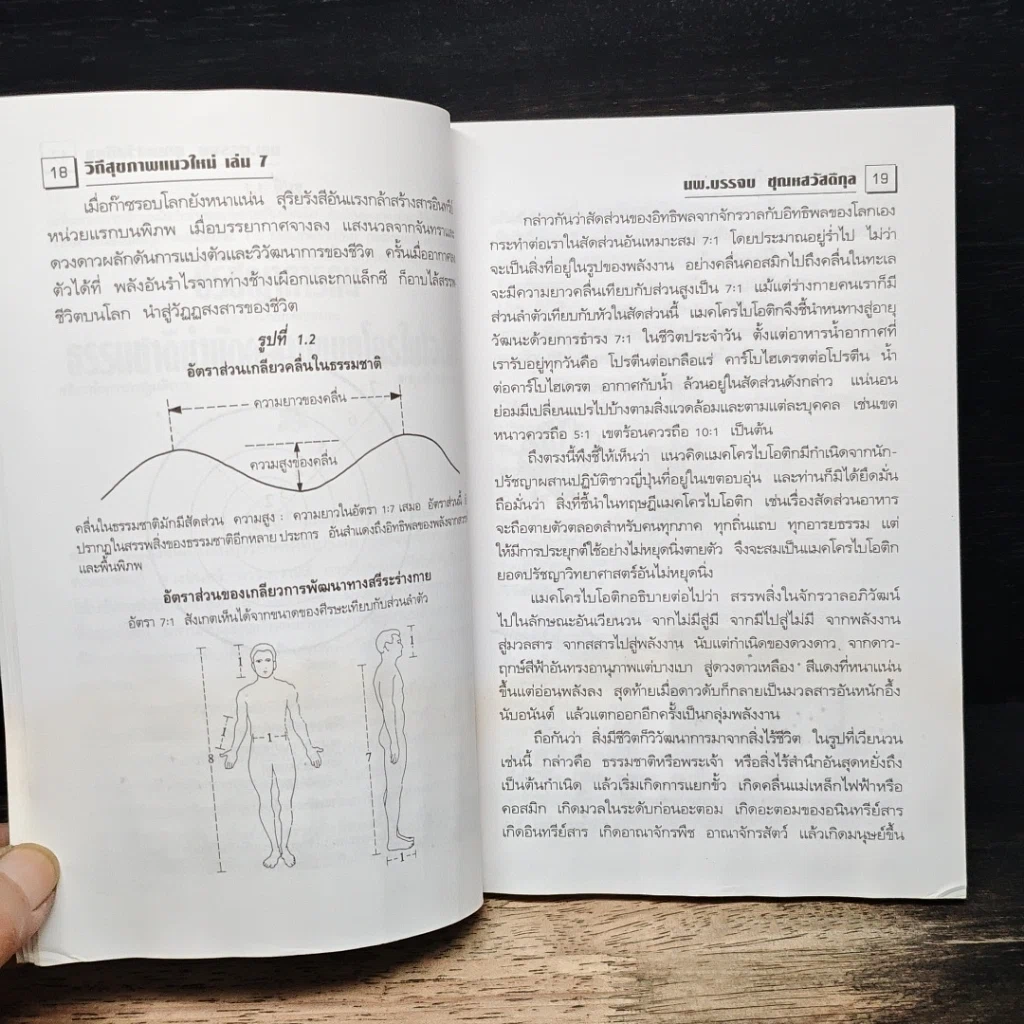 18 วิถีสุขภาพแนวใหม่ เล่ม 7
เมื่อก๊าซรอบโลกยังหนาแน่น สุริยรังสีอันแรงกล้าสร้างสารอินทรีย์
หน่วยแรกบนพิภพ เมื่อบรรยากาศจางลง แสงนวลจากจันทราและ
ดวงดาวผลักดันการแบ่งตัวและวิวัฒนาการของชีวิต ครั้นเมื่ออากาศ
ตัวได้ที่ พลังอันรำไรจากทางช้างเผือกและกาแล็กซี ก็อาบไล้สรรพ
ชีวิตบนโลก นำสู่วัฏฏสงสารของชีวิต
รูปที่ 1.2
อัตราส่วนเกลียวคลื่นในธรรมชาติ
ความยาวของคลื่น
ความสูงของคลื่น
คลื่นในธรรมชาติมักมีสัดส่วน ความสูง : ความยาวในอัตรา 1:7 เสมอ อัตราส่วนนี้
ปรากฏในสรรพสิ่งของธรรมชาติอีกหลาย ประการ อันสำแดงถึงอิทธิพลของพลังจาก
และพื้นพิภพ
อัตราส่วนของเกลียวการพัฒนาทางสรีระร่างกาย
อัตรา 7:1 สังเกตเห็นได้จากขนาดของศีรษะเทียบกับส่วนลำตัว
1 1
1 1
8 7
1
นพ.บรรจบ ชุณหสวัสดิกุล 19
กล่าวกันว่าสัดส่วนของอิทธิพลจากจักรวาลกับอิทธิพลของโลกเอง
กระทำต่อเราในสัดส่วนอันเหมาะสม 7:1 โดยประมาณอยู่ร่ำไป ไม่ว่า
จะเป็นสิ่งที่อยู่ในรูปของพลังงาน อย่างคลื่นคอสมิกไปถึงคลื่นในทะเล
จะมีความยาวคลื่นเทียบกับส่วนสูงเป็น 7:1 แม้แต่ร่างกายคนเราก็มี
ส่วนลำตัวเทียบกับหัวในสัดส่วนนี้ แมคโครไบโอติกจึงชี้นำหนทางสู่อายุ
วัฒนะด้วยการธำรง 7:1 ในชีวิตประจำวัน ตั้งแต่อาหารน้ำอากาศที่
เรารับอยู่ทุกวันคือ โปรตีนต่อเกลือแร่ คาร์โบไฮเดรตต่อโปรตีน น้ำ
ต่อคาร์โบไฮเดรต อากาศกับน้ำ ล้วนอยู่ในสัดส่วนดังกล่าว แน่นอน
ย่อมมีเปลี่ยนแปรไปบ้างตามสิ่งแวดล้อมและตามแต่ละบุคคล เช่นเขต
หนาวควรถือ 5:1 เขตร้อนควรถือ 10:1 เป็นต้น
ถึงตรงนี้พึงชี้ให้เห็นว่า แนวคิดแมคโครไบโอติกมีกำเนิดจากนัก-
ปรัชญาผสานปฏิบัติชาวญี่ปุ่นที่อยู่ในเขตอบอุ่น และท่านก็มิได้ยึดมั่น
ถือมั่นว่า สิ่งที่ชี้นำในทฤษฎีแมคโครไบโอติก เช่นเรื่องสัดส่วนอาหาร
จะถือตายตัวตลอดสำหรับคนทุกภาค ทุกถิ่นแถบ ทุกอารยธรรม แต่
ให้มีการประยุกต์ใช้อย่างไม่หยุดนิ่งตายตัว จึงจะสมเป็นแมคโครไบโอติก
ยอดปรัชญาวิทยาศาสตร์อันไม่หยุดนิ่ง
แมคโครไบโอติกอธิบายต่อไปว่า สรรพสิ่งในจักรวาลอภิวัฒน์
ไปในลักษณะอันเวียนวน จากไม่มีสู่มี จากมีไปสู่ไม่มี จากพลังงาน
สู่มวลสาร จากสสารไปสู่พลังงาน นับแต่กำเนิดของดวงดาว จากดาว-
ฤกษ์สีฟ้าอันทรงอานุภาพแต่บางเบา สู่ดวงดาวเหลือง สีแดงที่หนาแน่น
ขึ้นแต่อ่อนพลังลง สุดท้ายเมื่อดาวดับก็กลายเป็นมวลสารอันหนักอึ้ง
นับอนันต์ แล้วแตกออกอีกครั้งเป็นกลุ่มพลังงาน
ถือกันว่า สิ่งมีชีวิตก็วิวัฒนาการมาจากสิ่งไร้ชีวิต ในรูปที่เวียนวน
เช่นนี้ กล่าวคือ ธรรมชาติหรือพระเจ้า หรือสิ่งไร้สำนึกอันสุดหยั่งถึง
เป็นต้นกำเนิด แล้วเริ่มเกิดการแยกขั้ว เกิดคลื่นแม่เหล็กไฟฟ้าหรือ
คอสมิก เกิดมวลในระดับก่อนอะตอม เกิดอะตอมของอนินทรีย์สาร
เกิดอินทรีย์สาร เกิดอาณาจักรพืช อาณาจักรสัตว์ แล้วเกิดมนุษย์ขึ้น